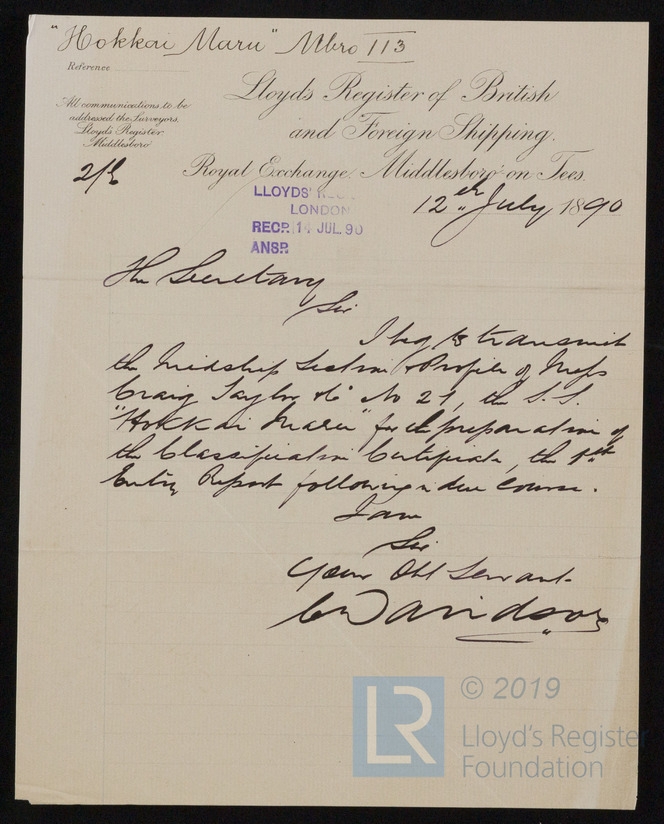 "Hokkai Maru" Mbro 113
Reference
All communications to be
addressed the Surveyors,
Lloyd's Register
Middlesboro'
Lloyd's Register of British
and Foreign Shipping.
Royal Exchange, Middlesboro' on Tees.
12th July 1890
LLOYDS'
LONDON
RECD. 14 JUL. 90
ANSD.
The Secretary
Sir
I beg to transmit
the Midship Section & Profile of Mess
Craig Taylor & Co No 21, the S.S.
"Hokkai Maru" for the preparation of
the Classification Certificate, the 1st
Entry Report following in due course.
I am
Sir
Your Obt Servant
Davidson
LR
© 2019
Lloyd's Register
Foundation